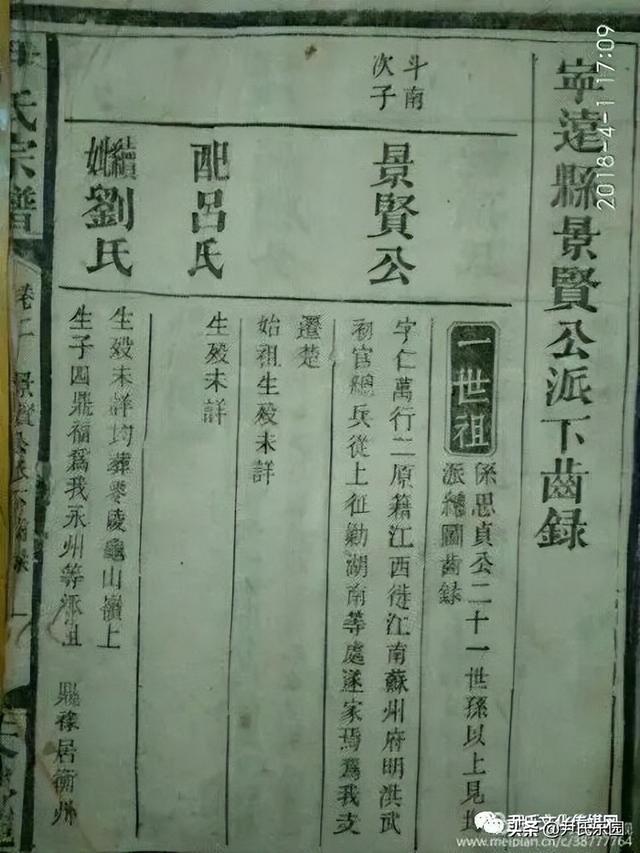 寧遠縣景賢公派下齒錄
一世祖
係思貞公二十一世孫以上見
派繪圖齒錄
斗南
次子
景賢公
字仁萬行二原籍江西徙江南蘇州府明洪武
初官總兵從上征勦湖南等處遂家焉為我支
遷楚
始祖生殁未詳
配呂氏
生殁未詳
續
妣劉氏
生殁未詳均葬零陵龜山嶺上
生子四鼎福為我永州等派祖 鼎祿居衡州
尹氏宗譜
卷二
景賢公派下齒錄
2018-4-1 17:09
尹氏文化传媒网
头条@尹氏乐园
www.meipian.cn/c/38777764